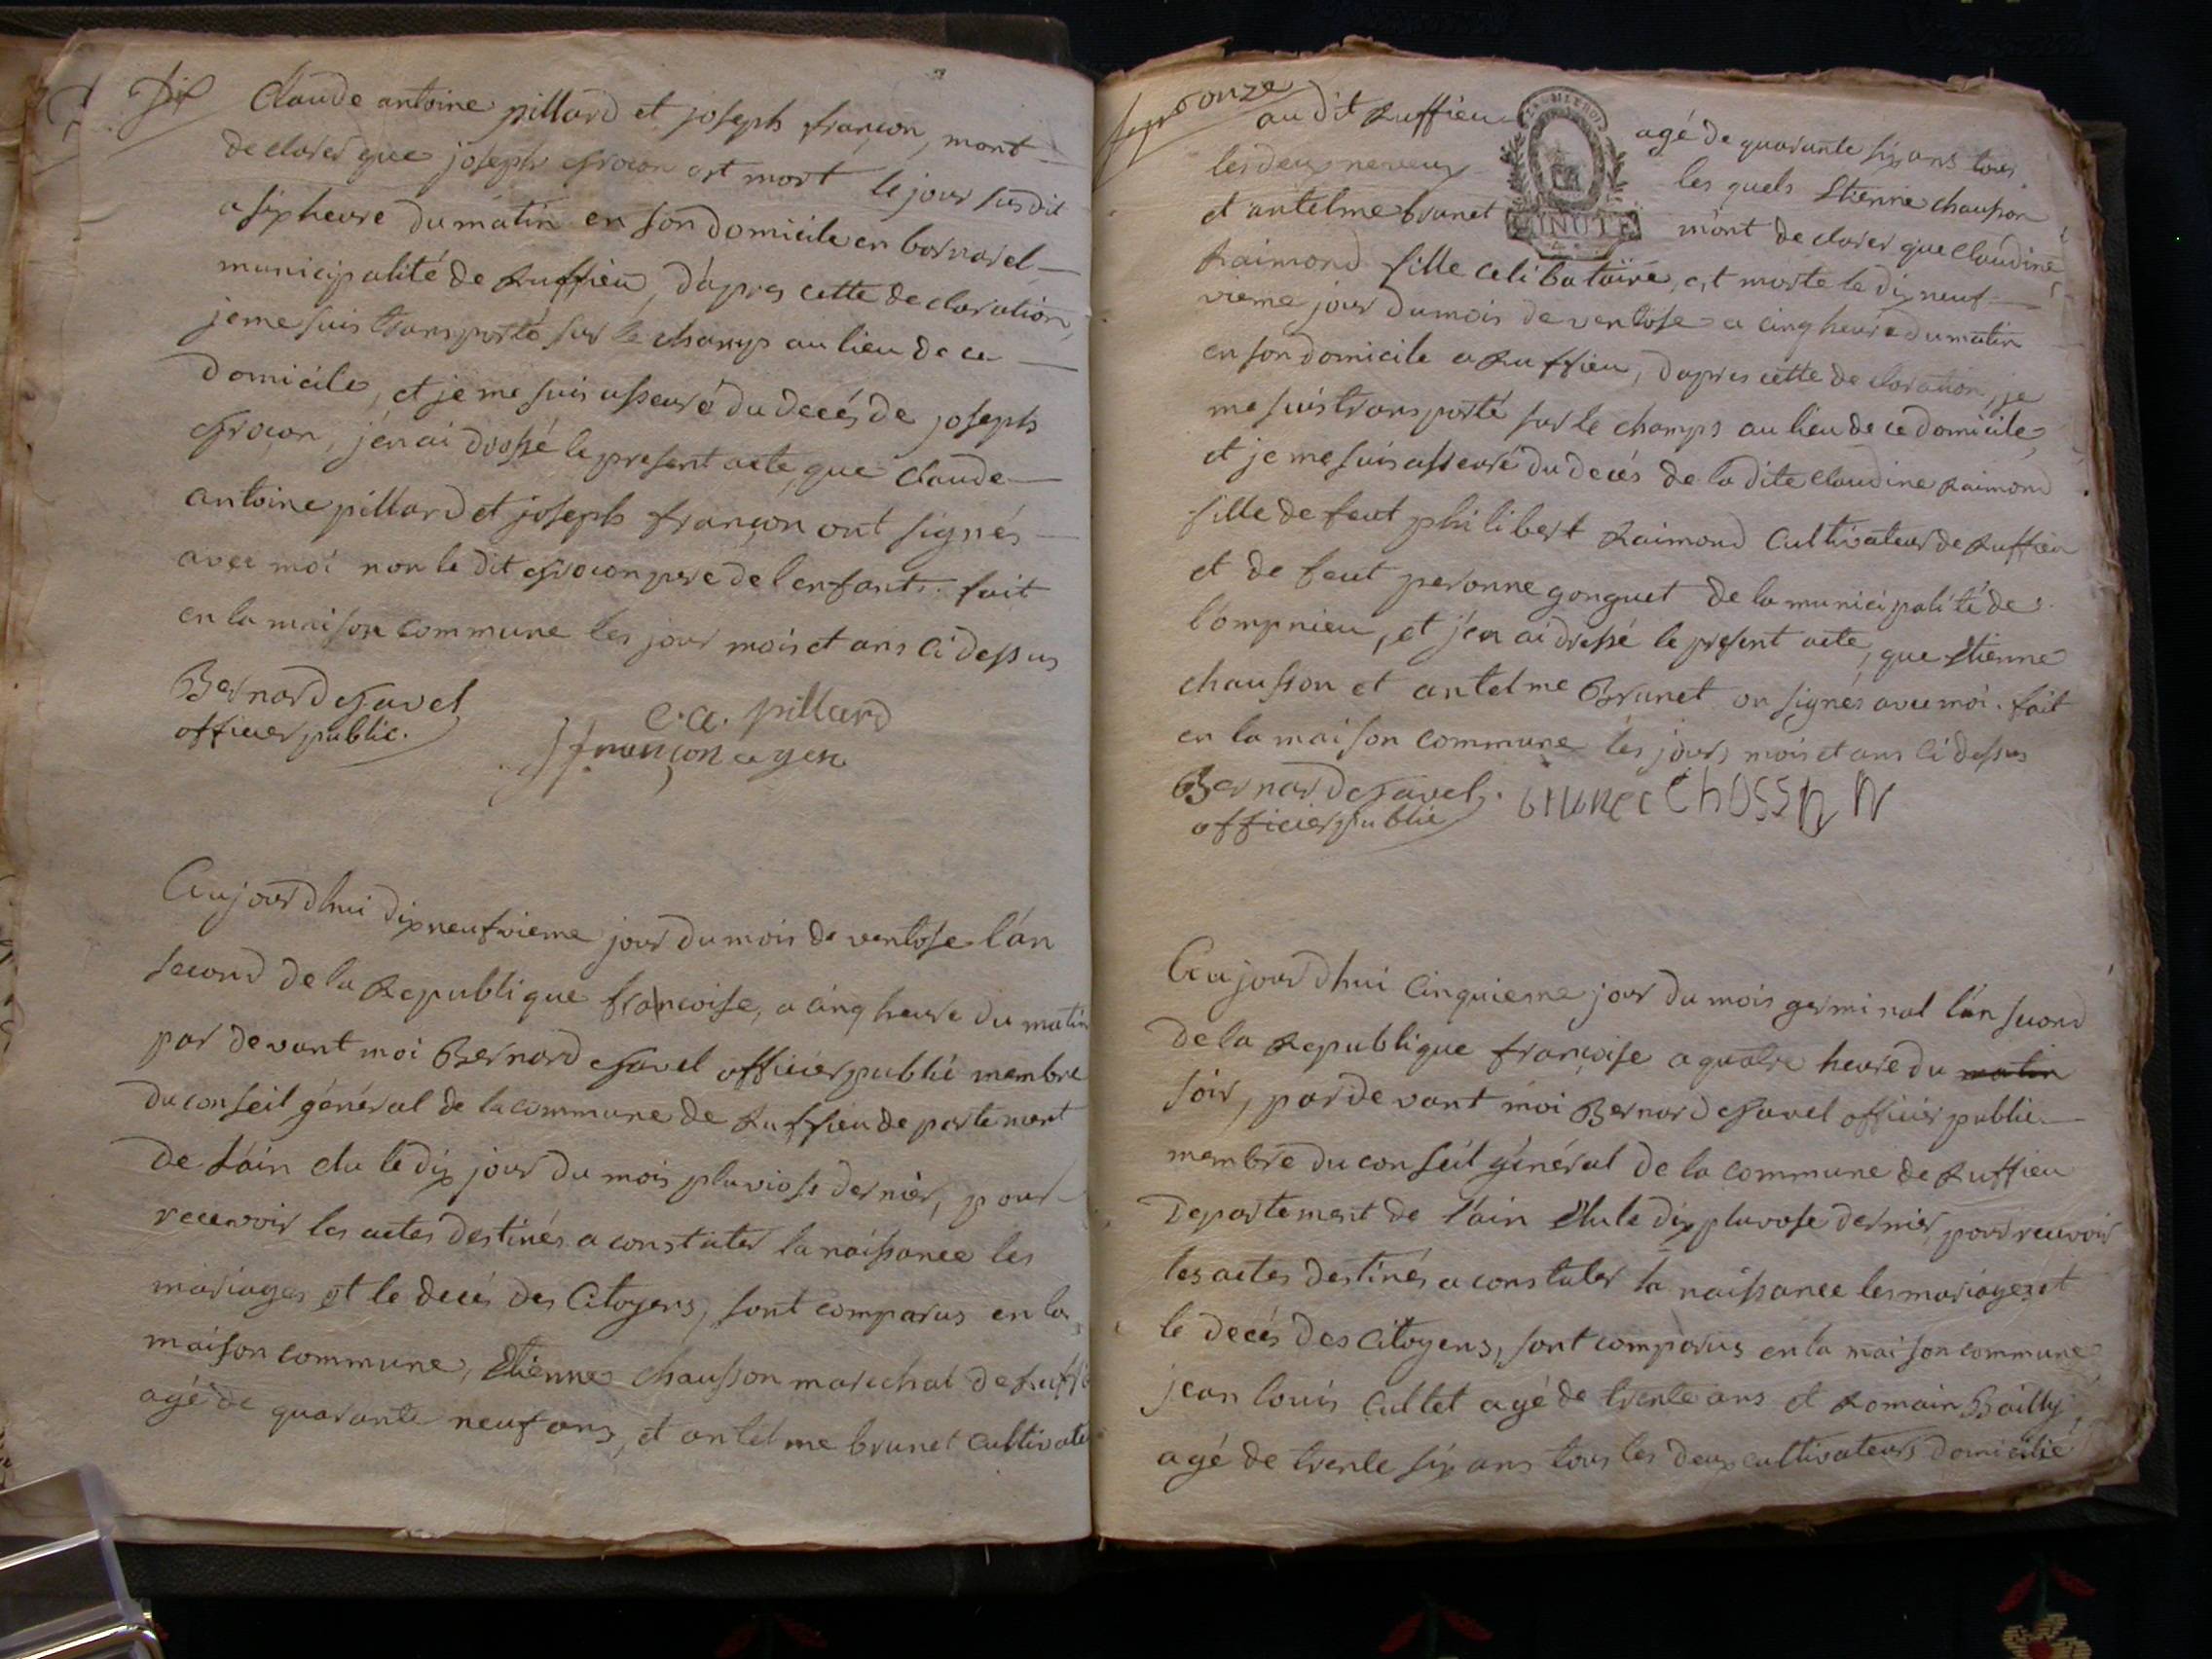 Dix
Claude antoine pillard et joseph françon, mont
declarer que joseph est mort le jour susdit
a six heure du matin en son domicile en
municipalité de Ruffieu, d'apres cette declaration,
je me suis transporté sur le champs au lieu de ce
domicile, et je me suis asseuré du decés de joseph
j'en ai drossé le present acte, que claude
antoine pillard et joseph françon ont signés
avec moi non le dit pere de l'enfant. fait
en la maison commune les jour mois et ans ci dessus
Bernard Javel
officier public.
c. a. pillard
françon agen
Aujourdhui dixneufvieme jour du mois de ventose l'an
second de la Republique francoise, a cinq heure du matin
par devant moi Bernard Javel officier public membre
du conseil général de la commune de Ruffieu departement
de l'ain elu le dix jour du mois pluviose dernier, pour
recevoir les actes destinés a constater la naissance les
mariages et le decés des Citoyens, sont comparus en la
maison commune, Etienne chausson marechal de Ruffi
agé de quarante neuf ans, et antelme brunet cultivate
onze
au dit Ruffieu agé de quarante six ans tous
les deux neveux les quels Etienne chausson
et antelme brunet m'ont declarer que claudine
MINUTE
Raimond fille celibataire, est morte le dix neuf
vieme jour du mois de ventose a cinq heure du matin
en son domicile a Ruffieu, d'apres cette declaration, je
me suis transporté sur le champs au lieu de ce domicile,
et je me suis asseuré du decés de la dite claudine Raimond
fille de feut philibert Raimond Cultivateur de Ruffieu
et de feut peronne gonguet de la municipalité de
lompnieu, et j'en ai dressé le present acte, que Etienne
chausson et antelme Brunet on signés avec moi. fait
en la maison commune les jours mois et ans ci dessus
Bernard Javel.
officier public
brunet ChOSSON
Aujourdhui Cinquieme jour du mois germinal l'an second
de la Republique françoise a quatre heure du matin
soir, par devant moi Bernard Javel officier public
membre du conseil général de la commune de Ruffieu
departement de l'ain Elu le dix pluvose dernier, pour recevoir
les actes destinés a constater la naissance les mariages et
le decés des Citoyens, sont comparus en la maison commune
jean louis Cullet agé de trente ans et Romain Bailly,
agé de trente six ans tous les deux cultivateurs domicilié